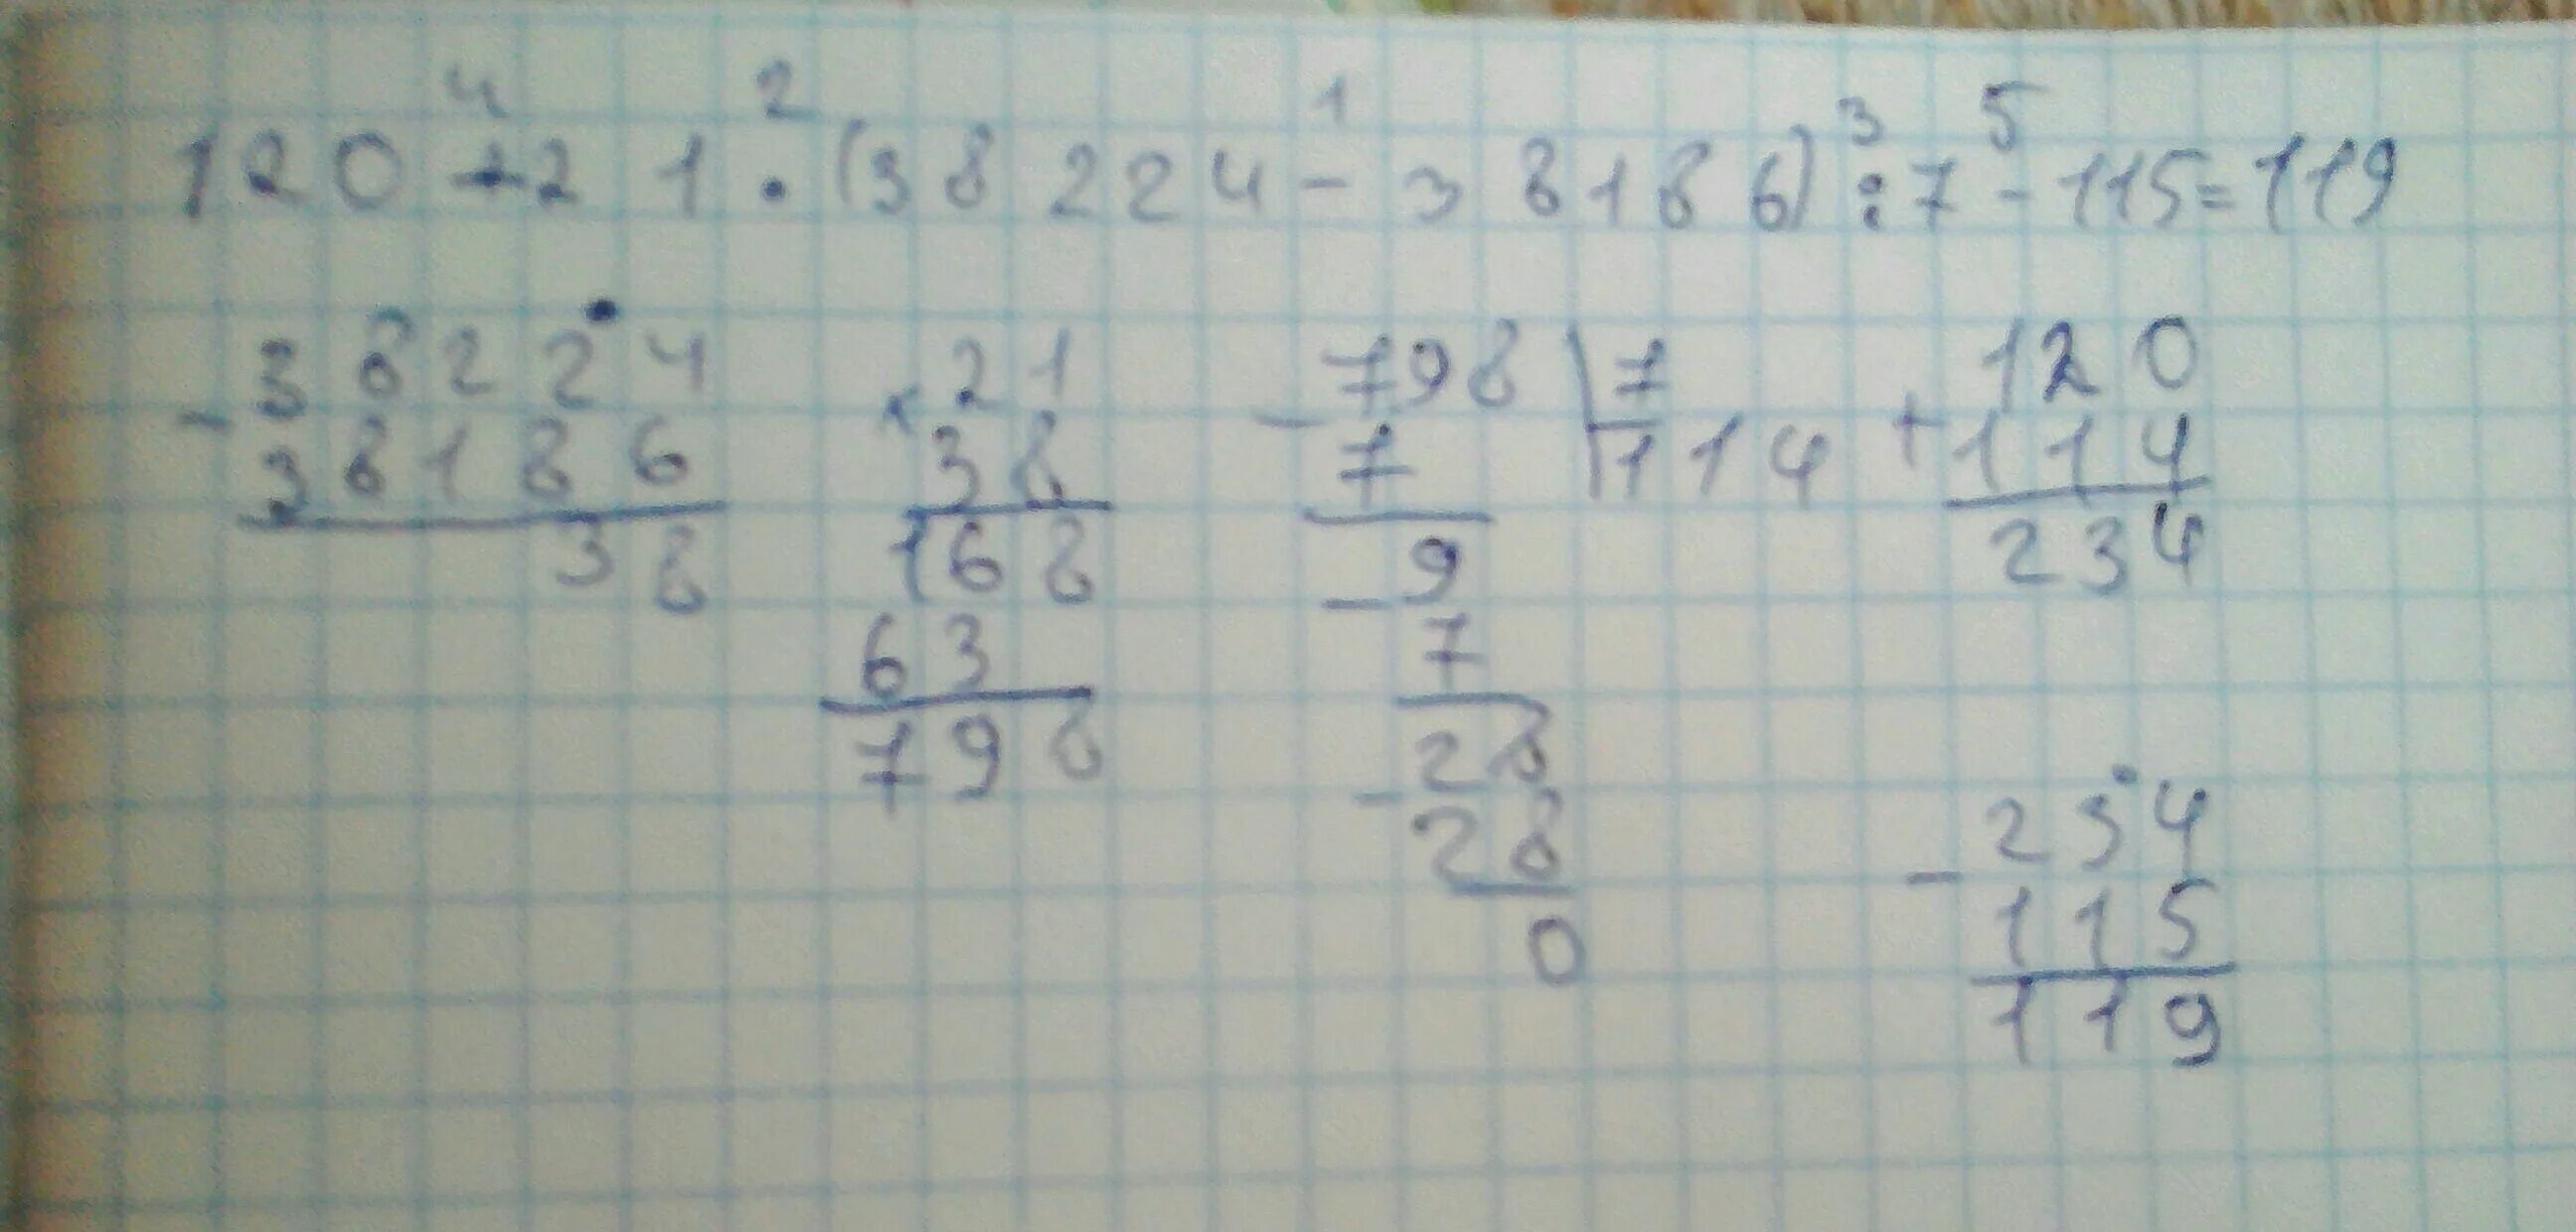 4 2 1 3 5
120+21·(38224-38186):7-115=119
-38224
38186
38
×21
38
168
63
798
-798|7
7 114
9
-7
28
-28
0
+120
114
234
-234
115
119